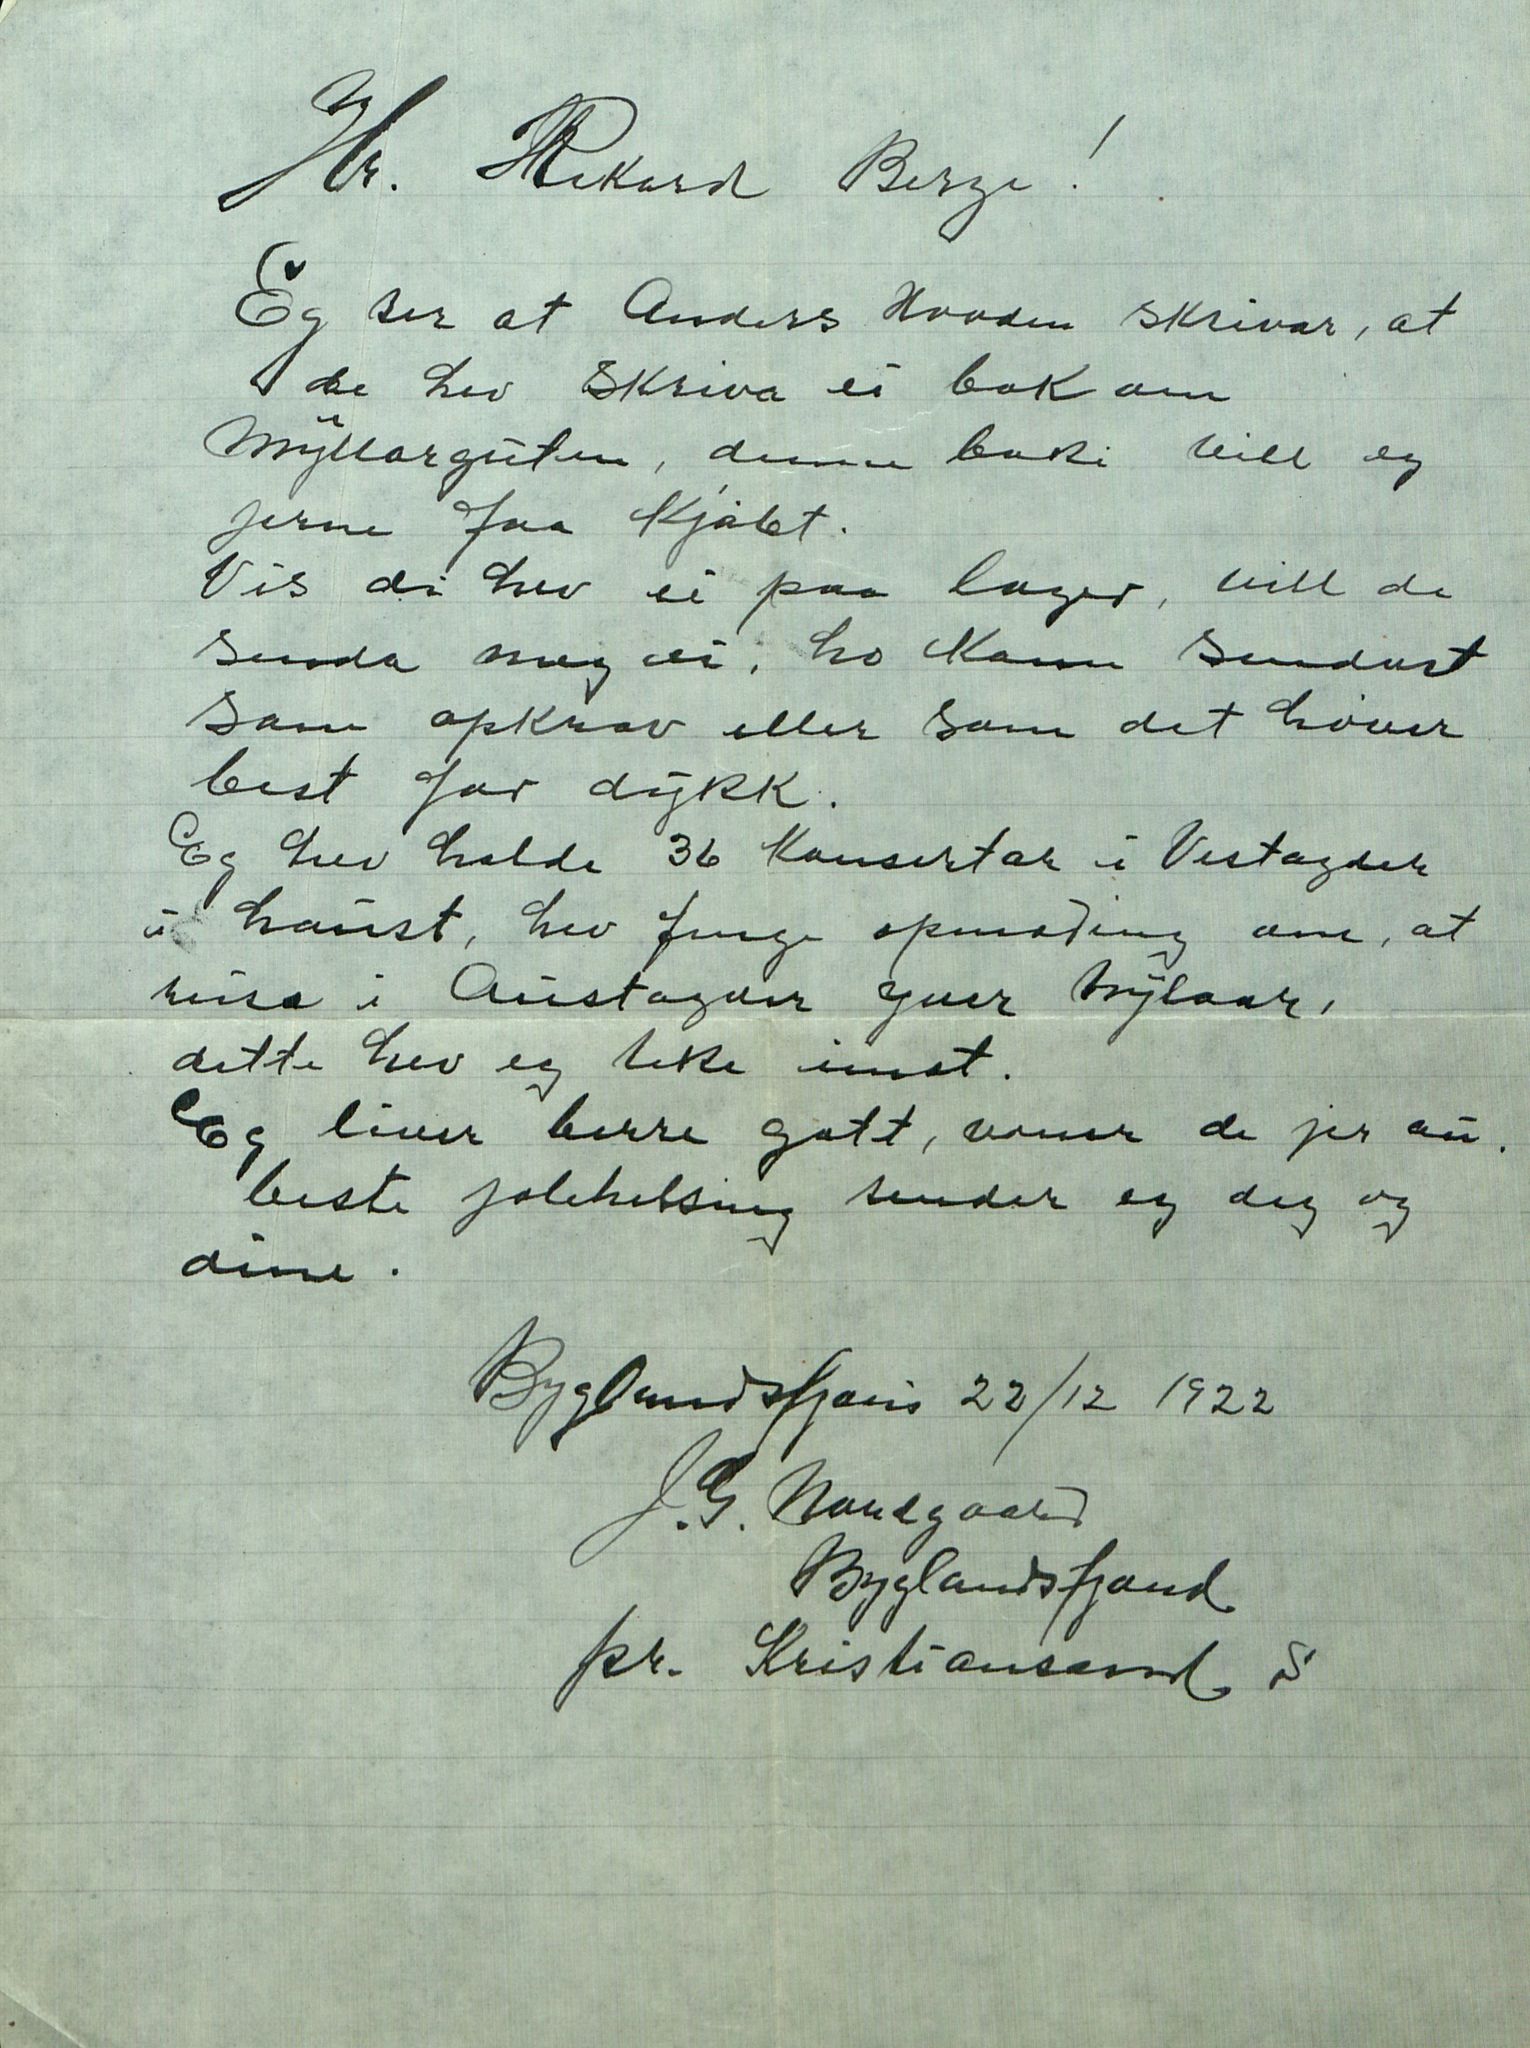 Hr. Rikard Berge!
Eg ser at Anders Hovden skrivar, at
de hev skriva ei bok om
Myllarguten, denne boki vill eg
jerne faa kjøbt.
Vis di hev ei paa lager, vill de
senda meg ei, ho kann sendast
som opkrav eller som det høver
best for dykk.
Eg hev halde 36 konsertar i Vestagder
i haust, hev funge opmoding om, at
reisa i Austagder yver nylaar,
dette hev eg teke imot.
Eg liver berre gott, voner de jer au.
beste jolehelsing sender eg deg og
dine.
Byglandsfjord 22/12 1922
J. G. Nordgaard
Byglandsfjord
pr. Kristiansand S